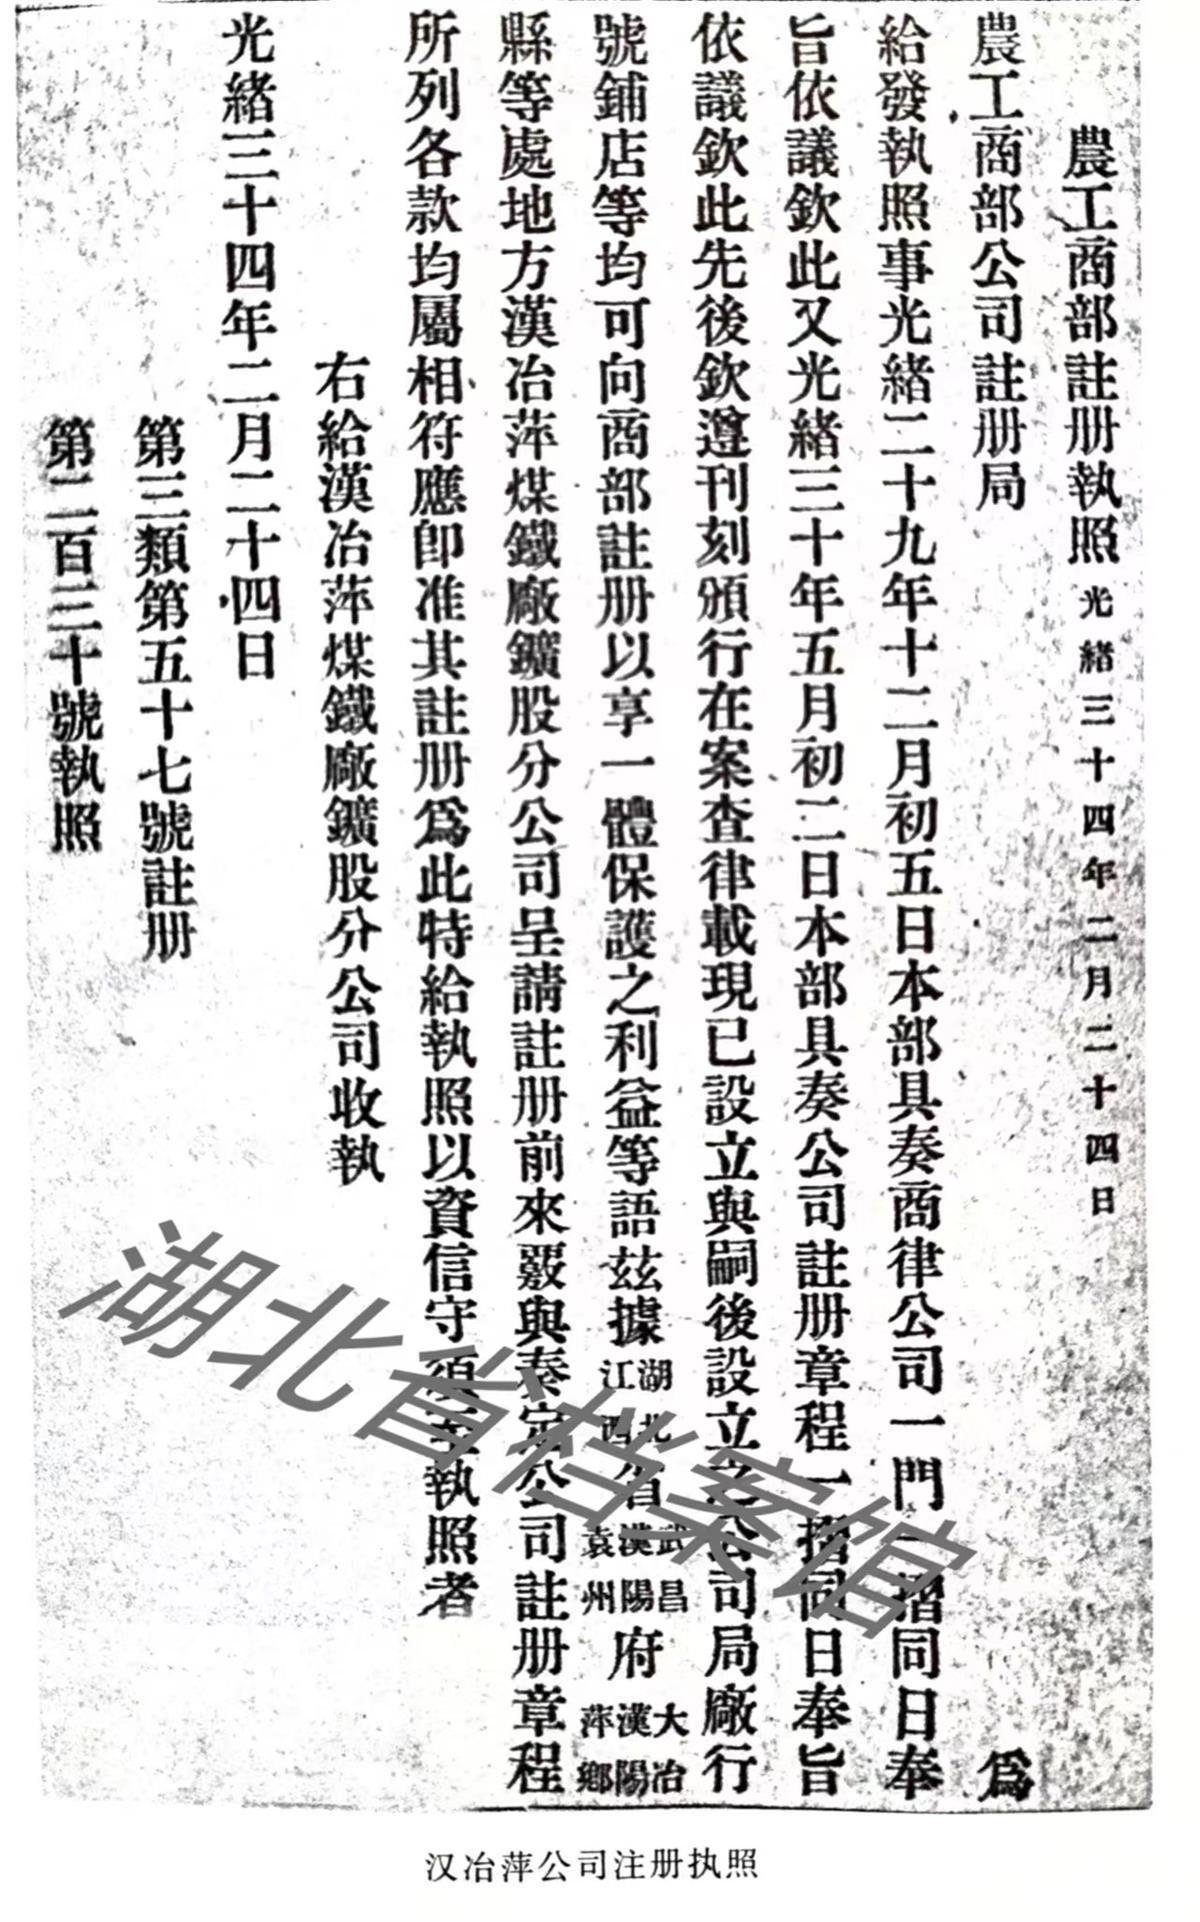 農工商部註册執照 光緒三十四年二月二十四日
農工商部公司註册局 爲
給發執照事光緒二十九年十二月初五日本部具奏商律公司一門一摺同日奉
旨依議欽此又光緒三十年五月初二日本部具奏公司註册章程一摺同日奉旨
依議欽此先後欽遵刊刻頒行在案查律載現已設立與嗣後設立之公司局廠行
號鋪店等均可向商部註册以享一體保護之利益等語兹據湖北江西省武昌漢陽袁州府大冶漢陽萍鄉
縣等處地方漢冶萍煤鐵廠鑛股分公司呈請註册前來覈與奏定公司註册章程
所列各款均屬相符應卽准其註册爲此特給執照以資信守須至執照者
右給漢冶萍煤鐵廠鑛股分公司收執
光緒三十四年二月二十四日
第三類第五十七號註册
第二百三十號執照
湖北省档案馆
汉冶萍公司注册执照